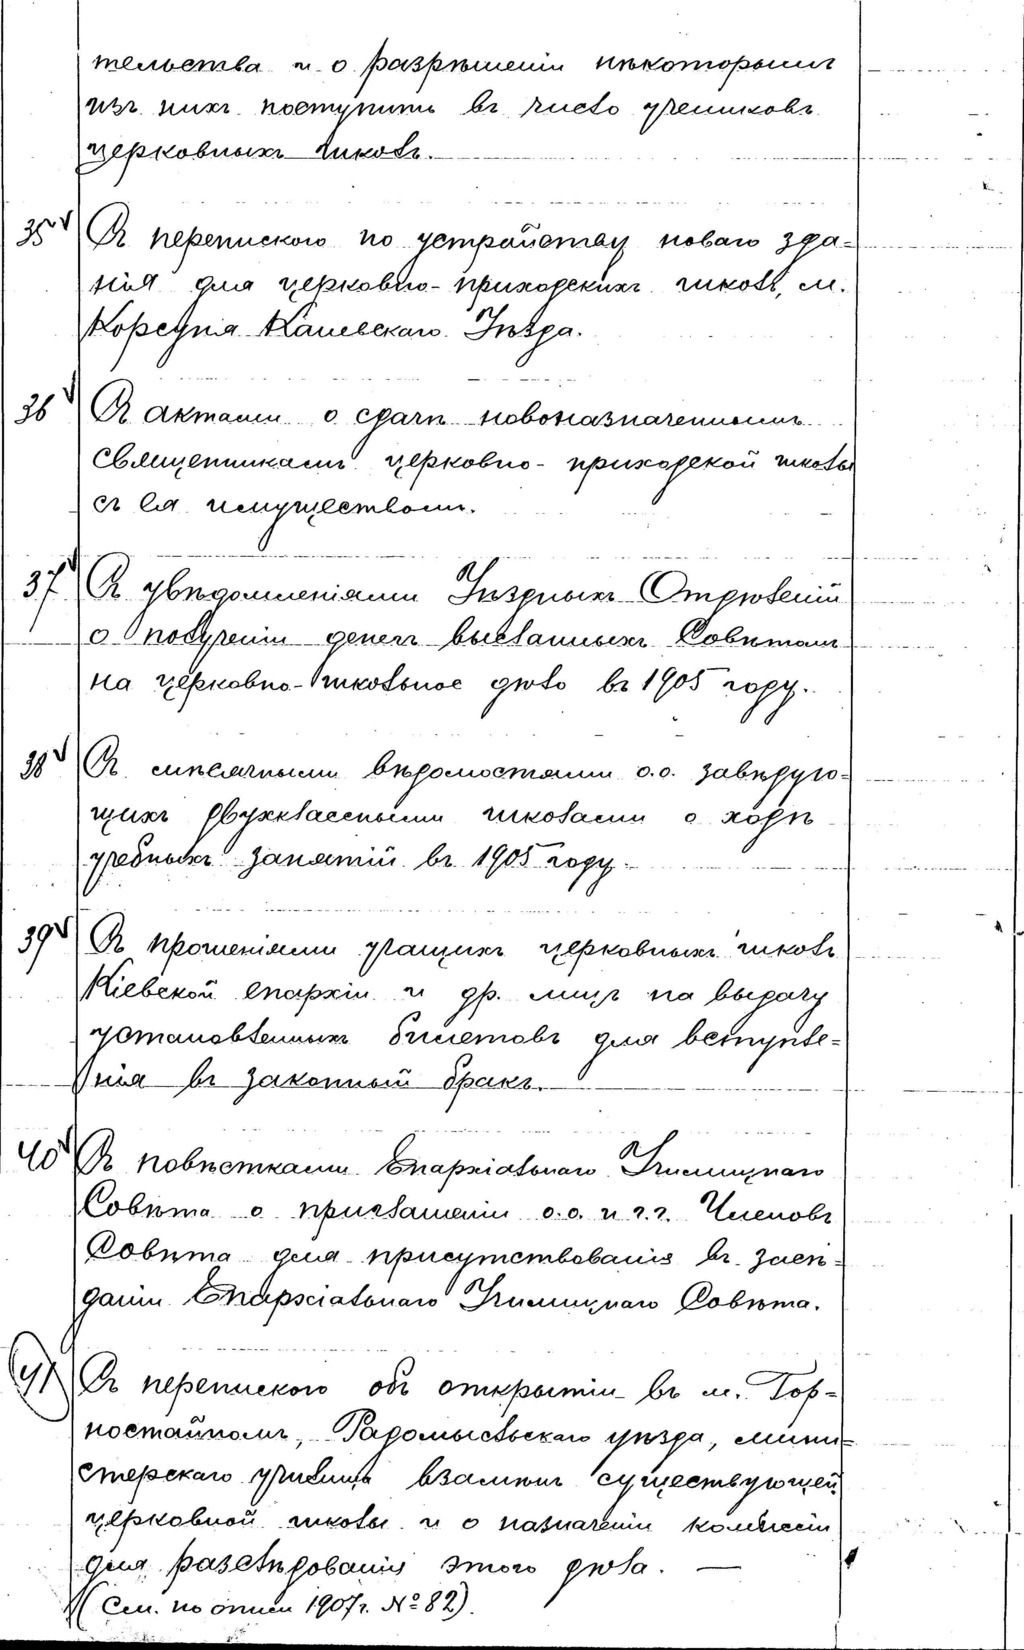 тельства и о разрѣшеніи нѣкоторымъ
изъ нихъ поступить въ число учениковъ
церковныхъ школъ.
35 Съ перепискою по устройству новаго зда-
нія для церковно-приходскихъ школъ, м.
Корсуня Каневскаго Уѣзда.
36 Съ актами о сдачѣ новоназначеннымъ
священникамъ церковно-приходской школы
съ ея имуществомъ.
37 Съ увѣдомленіями Уѣздныхъ Отдѣленій
о полученіи денегъ высланныхъ Совѣтомъ
на церковно-школьное дѣло въ 1905 году.
38 Съ мѣсячными вѣдомостями о.о. завѣдую-
щихъ двухклассными школами о ходѣ
учебныхъ занятій въ 1905 году.
39 Съ прошеніями учащихъ церковныхъ школъ
Кіевской епархіи и др. лицъ на выдачу
установленныхъ билетовъ для вступле-
нія въ законный бракъ.
40 Съ повѣстками Епархіальнаго Училищнаго
Совѣта о приглашеніи о.о. и г.г. Членовъ
Совѣта для присутствованія въ засѣ-
даніи Епархіальнаго Училищнаго Совѣта.
41 Съ перепискою объ открытіи въ м. Гор-
ностайполѣ, Радомысльскаго уѣзда, мини-
стерскаго училища взамѣнъ существующей
церковной школы и о назначеніи комиссіи
для разслѣдованія этого дѣла. —
(См. по описи 1907 г. № 82).